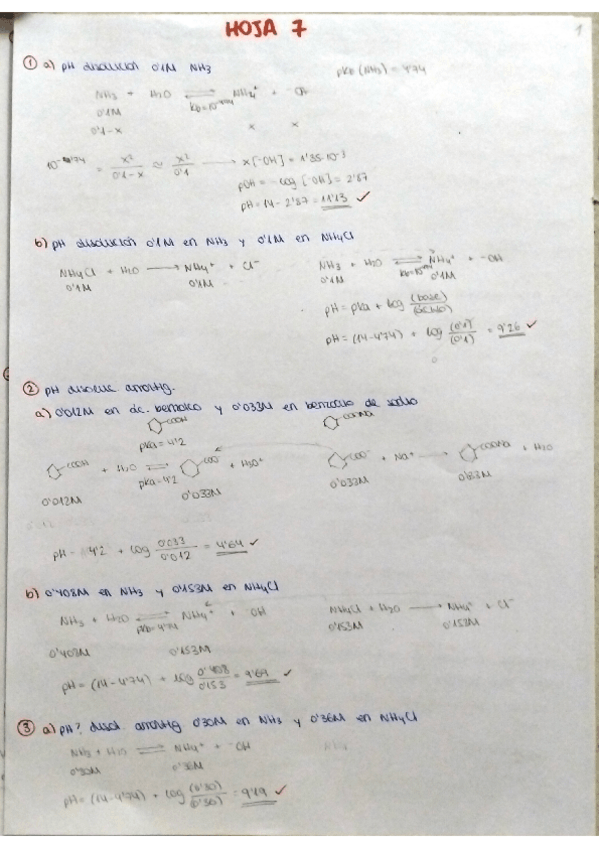 HOJA 7
1
① a) pH disolución 0'1M NH3
pKb (NH3) = 4'74
NH3 + H2O ⇌ NH4+ + -OH
0'1M
0'1-x x x
x²/0'1-x ≈ x²/0'1 → x[-OH] = 1'35·10-3
pOH = -log [-OH] = 2'87
pH = 14 - 2'87 = 11'13 ✓
b) pH disolución 0'1M en NH3 y 0'1M en NH4Cl
NH4Cl + H2O → NH4+ + Cl-
0'1M 0'1M
NH3 + H2O ⇌ NH4+ + -OH
0'1M 0'1M
pH = pKa + log (base)/(ácido)
pH = (14-4'74) + log (0'1)/(0'1) = 9'26 ✓
② pH disoluc amortig.
a) 0'012M en ác. benzoico y 0'033M en benzoato de sodio
COOH COONa
pKa = 4'2
COOH + H2O ⇌ COO- + H3O+
pKa = 4'2
0'012M 0'033M
COO- + Na+ → COONa + H2O
0'033M
pH = 4'2 + log 0'033/0'012 = 4'64 ✓
b) 0'408M en NH3 y 0'153M en NH4Cl
NH3 + H2O ⇌ NH4+ + -OH
pKb=4'74
0'408M 0'153M
NH4Cl + H2O → NH4+ + Cl-
0'153M 0'153M
pH = (14-4'74) + log 0'408/0'153 = 9'69 ✓
③ a) pH? disol. amortig 0'30M en NH3 y 0'36M en NH4Cl
NH3 + H2O ⇌ NH4+ + -OH
0'30M 0'36M
pH = (14-4'74) + log (0'30) = 9'19 ✓